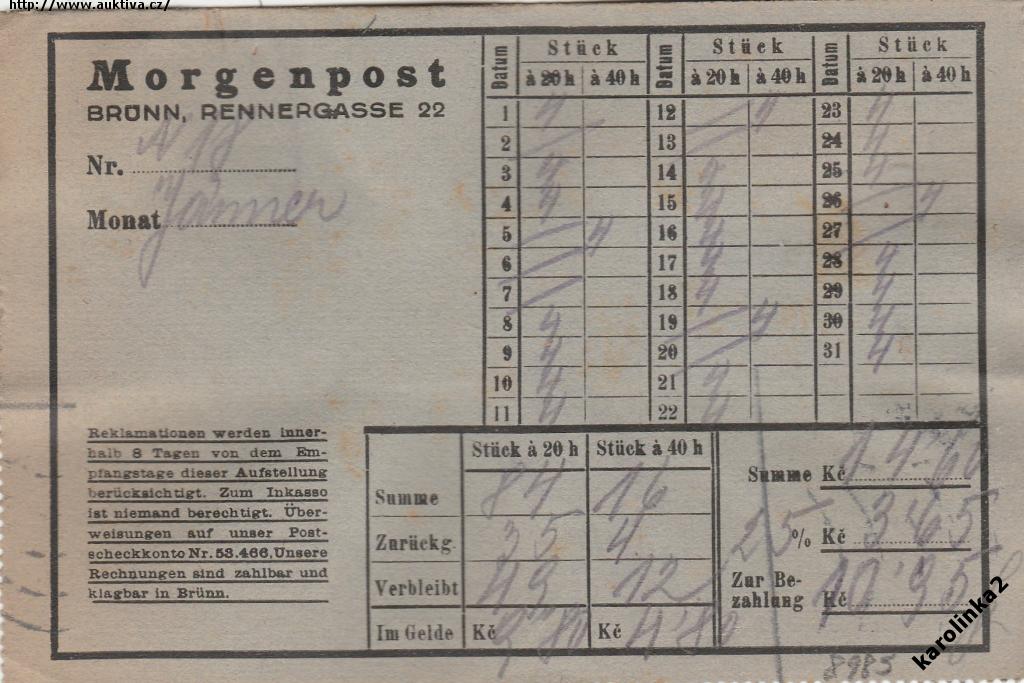 http://www.auktiva.cz/
Morgenpost
BRÜNN, RENNERGASSE 22
Nr. N 18
Monat Jänner
Datum Stück Datum Stück Datum Stück
à 20 h à 40 h à 20 h à 40 h à 20 h à 40 h
1 4 12 — 4 23 4
2 — 13 — 24 4
3 4 14 4 25 4
4 4 15 4 26 — 4
5 — 4 16 4 27 —
6 — 17 4 28 4
7 — 18 4 29 4
8 4 19 — 4 30 4
9 4 20 — 31 4
10 4 21 4
11 4 22 4
Reklamationen werden inner-
halb 8 Tagen von dem Em-
pfangstage dieser Aufstellung
berücksichtigt. Zum Inkasso
ist niemand berechtigt. Über-
weisungen auf unser Post-
scheckkonto Nr. 53.466, Unsere
Rechnungen sind zahlbar und
klagbar in Brünn.
Stück à 20 h Stück à 40 h
Summe 84 16
Zurückg. 35 4
Verbleibt 49 12
Im Gelde Kč 9'80 Kč 4'80
Summe Kč 14'60
25 % Kč 3'65
Zur Be-
zahlung Kč 10'95
8985
karolinka2